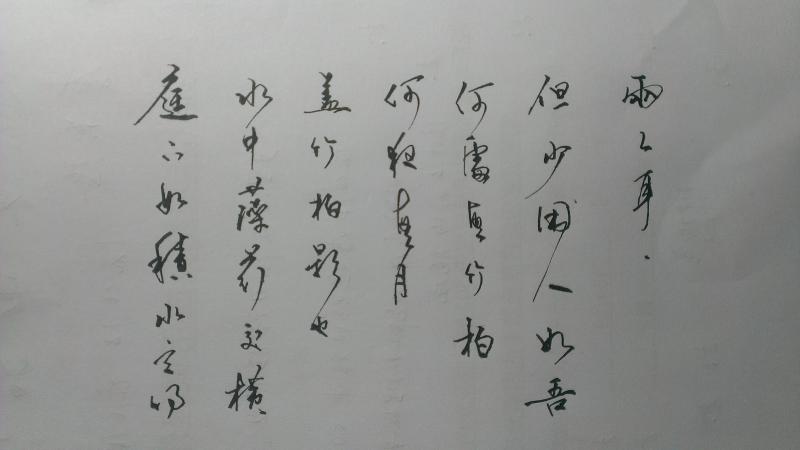 庭下如積水空明
水中藻荇交横
盖竹柏影也
何夜無月
何處無竹柏
但少閑人如吾
兩人耳